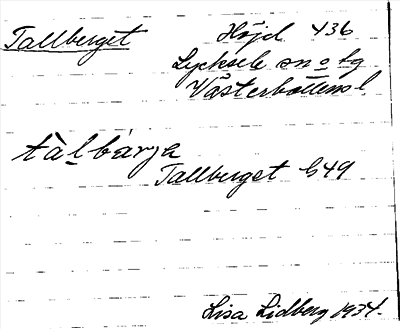 Tallberget Höjd 436
Lycksele sn o tg
Västerbottens l
tàlbárja
Tallberget G49
Lisa Lidberg 1934.